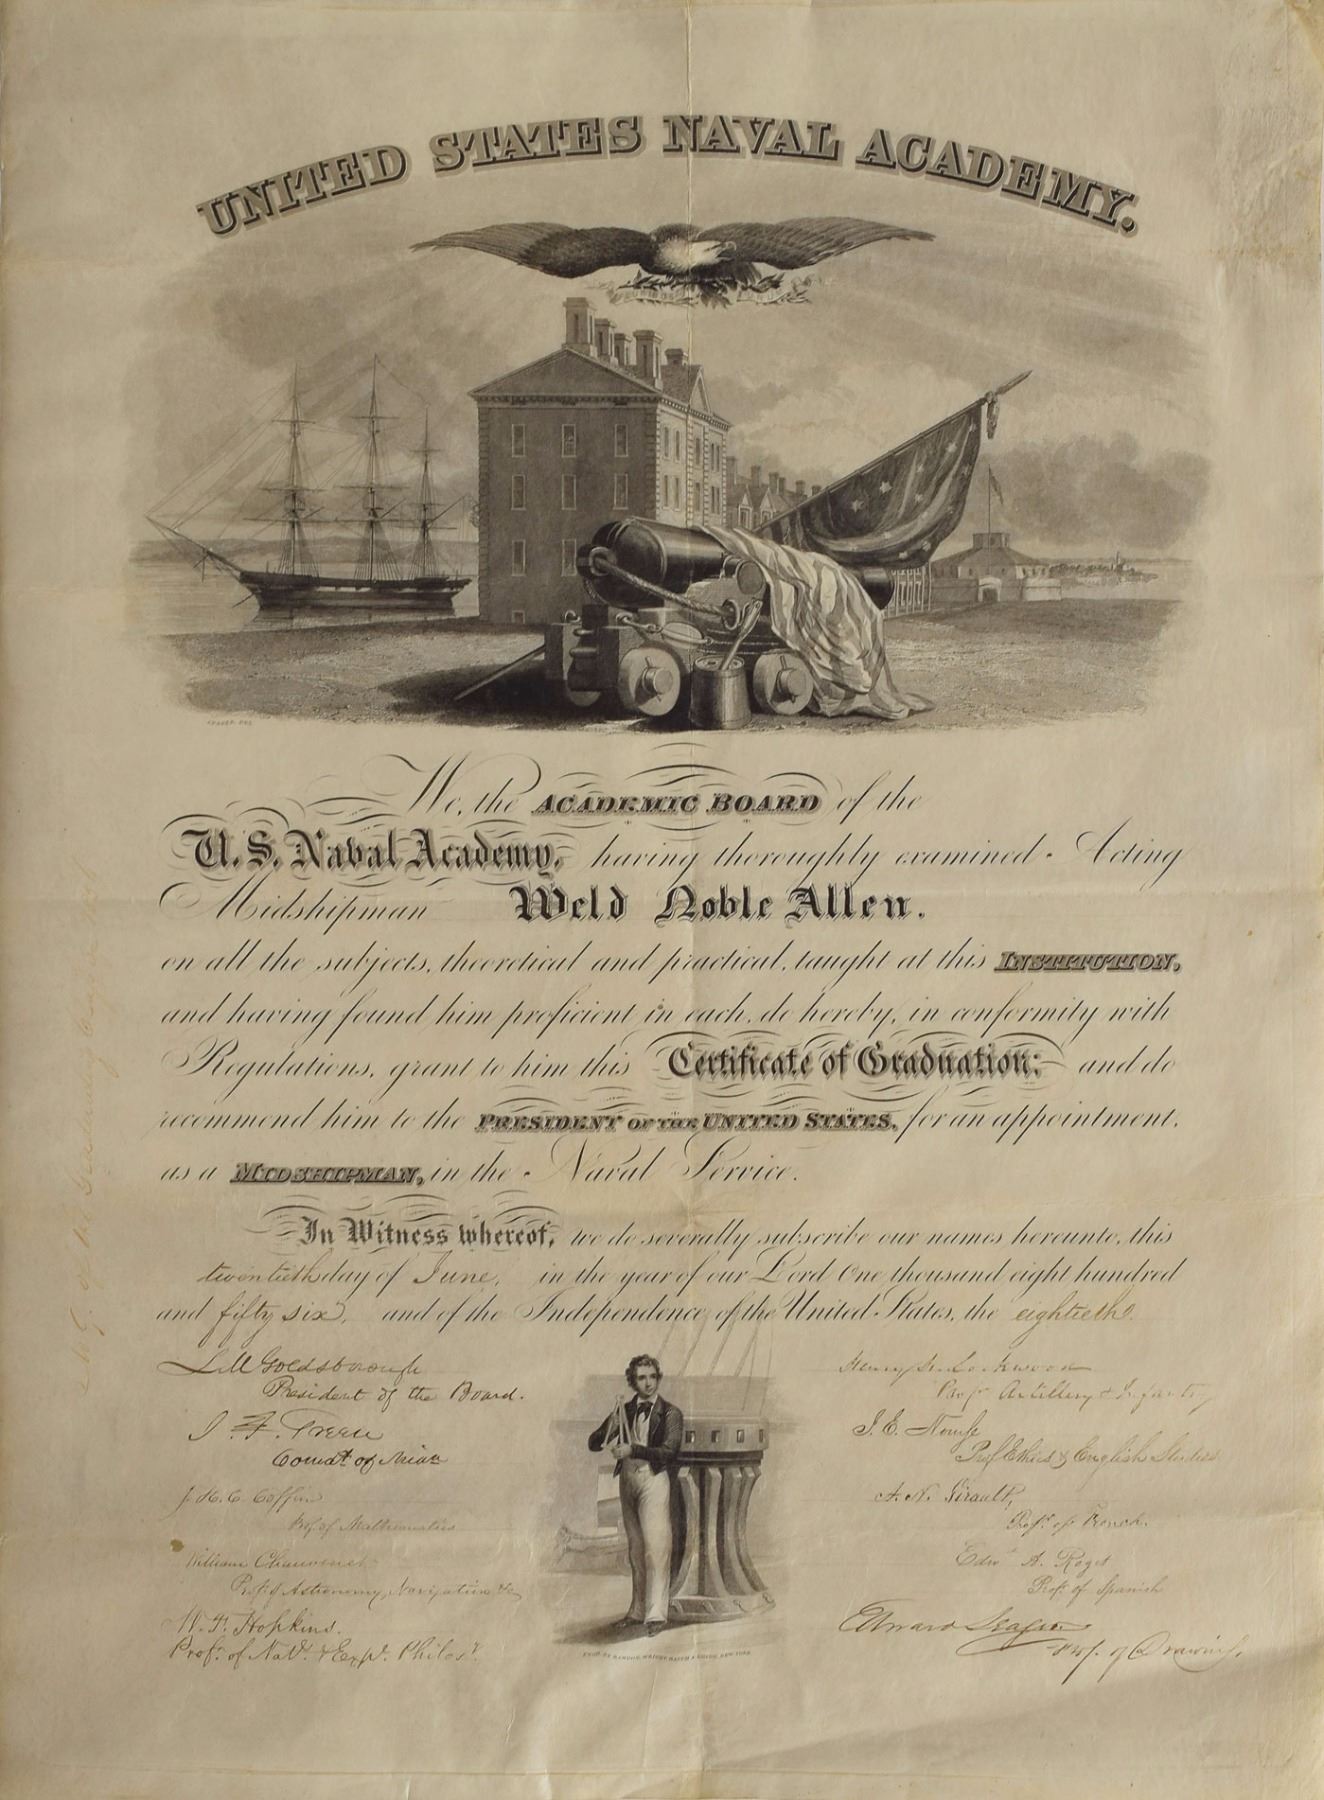 UNITED STATES NAVAL ACADEMY.
We, the ACADEMIC BOARD of the
U.S. Naval Academy, having thoroughly examined Acting
Midshipman Weld Noble Allen.
on all the subjects, theoretical and practical, taught at this INSTITUTION,
and having found him proficient in each, do hereby, in conformity with
Regulations, grant to him this Certificate of Graduation: and do
recommend him to the PRESIDENT OF THE UNITED STATES, for an appointment,
as a MIDSHIPMAN, in the Naval Service.
In Witness whereof, we do severally subscribe our names hereunto, this
twentieth day of June, in the year of our Lord One thousand eight hundred
and fifty six, and of the Independence of the United States, the eightieth.
L. M Goldsborough
President of the Board.
J. F. Green
Comdt of Midn
J. H. C. Coffin
Prof. of Mathematics
William Chauvenet
Prof. of Astronomy, Navigation &c
W. F. Hopkins.
Prof. of Natl. & Expl. Philosy.
Henry H. Lockwood
Prof. Artillery & Infantry
J. E. Nourse
Prof Ethics & English Studies
A. N. Girault,
Prof. of French.
Edwd A. Roget
Prof. of Spanish
Edward Seager
Prof. of Drawing.